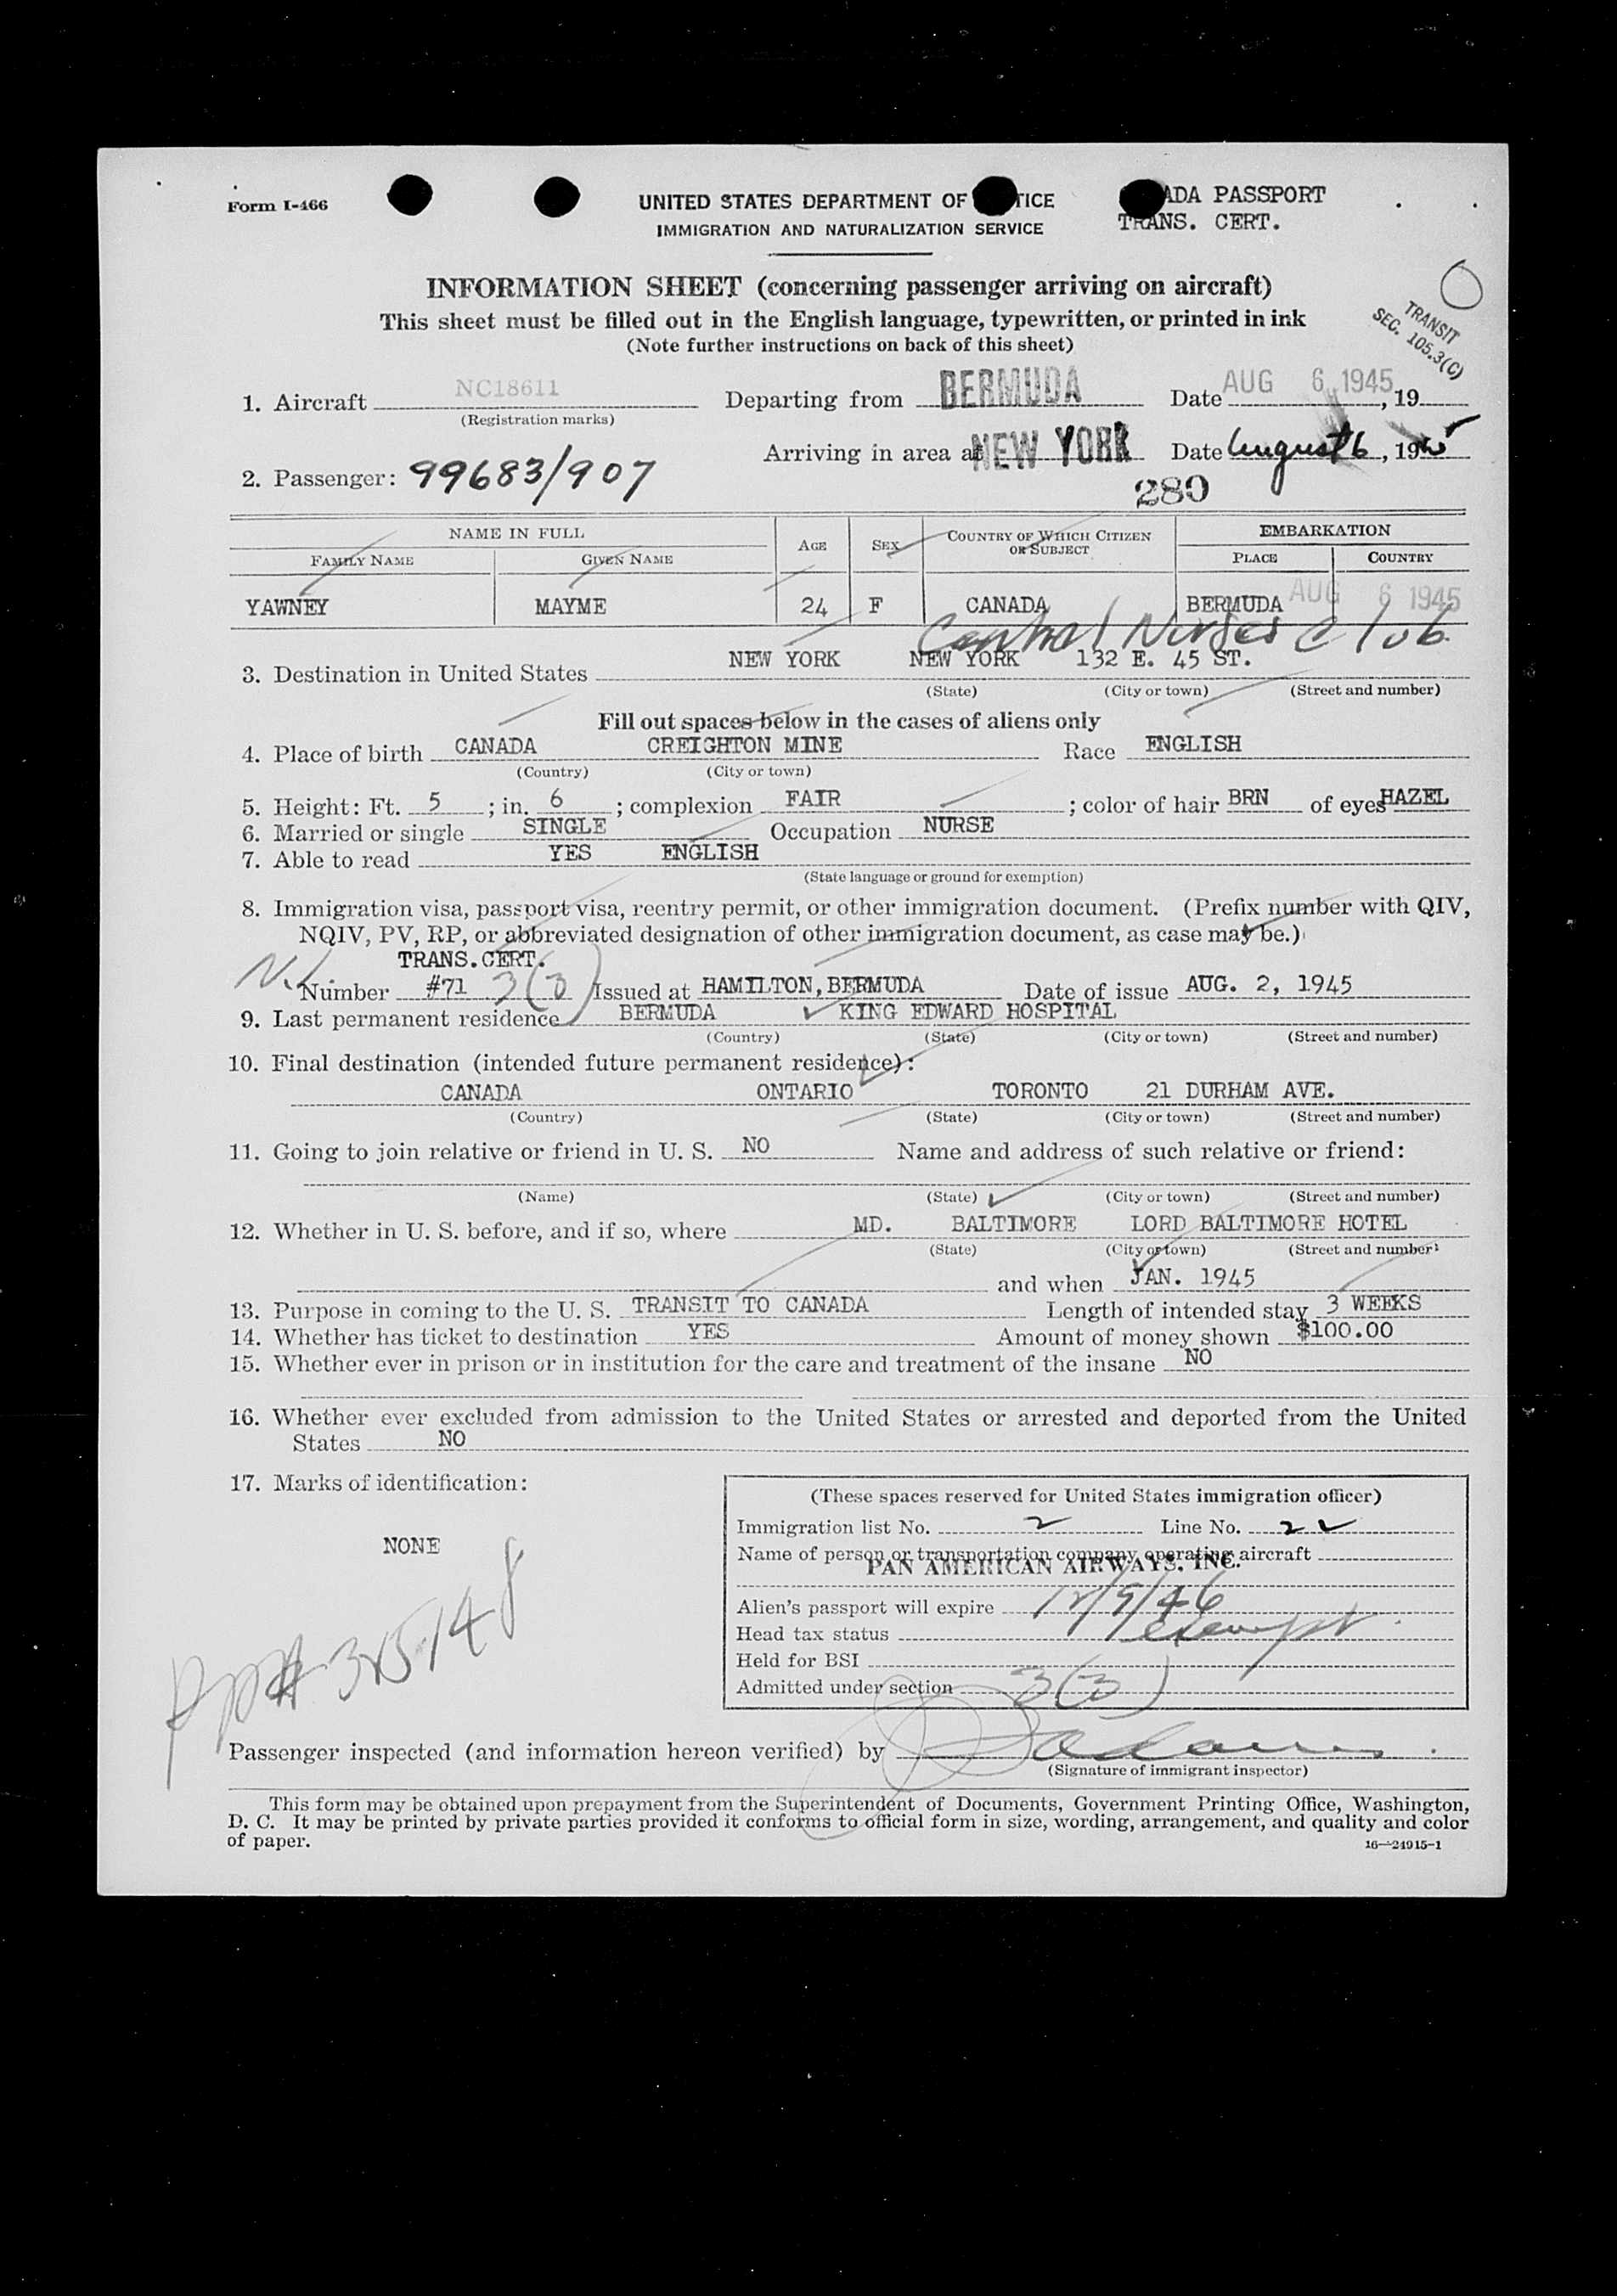 Form I-466
UNITED STATES DEPARTMENT OF TICE
IMMIGRATION AND NATURALIZATION SERVICE
ADA PASSPORT
TRANS. CERT.
INFORMATION SHEET (concerning passenger arriving on aircraft)
This sheet must be filled out in the English language, typewritten, or printed in ink
(Note further instructions on back of this sheet)
TRANSIT
SEC. 105.3(C)
1. Aircraft NC18611 Departing from BERMUDA Date AUG 6 1945, 19
(Registration marks)
Arriving in area at NEW YORK Date August 6, 1945
2. Passenger: 99683/907
280
NAME IN FULL AGE SEX COUNTRY OF WHICH CITIZEN OR SUBJECT EMBARKATION
FAMILY NAME GIVEN NAME PLACE COUNTRY
YAWNEY MAYME 24 F CANADA BERMUDA AUG 6 1945
Central Nurses Club
3. Destination in United States NEW YORK NEW YORK 132 E. 45 ST.
(State) (City or town) (Street and number)
Fill out spaces below in the cases of aliens only
4. Place of birth CANADA CREIGHTON MINE Race ENGLISH
(Country) (City or town)
5. Height: Ft. 5; in. 6; complexion FAIR; color of hair BRN of eyes HAZEL
6. Married or single SINGLE Occupation NURSE
7. Able to read YES ENGLISH
(State language or ground for exemption)
8. Immigration visa, passport visa, reentry permit, or other immigration document. (Prefix number with QIV,
NQIV, PV, RP, or abbreviated designation of other immigration document, as case may be.)
TRANS.CERT.
Number #71 3(3) Issued at HAMILTON, BERMUDA Date of issue AUG. 2, 1945
9. Last permanent residence BERMUDA KING EDWARD HOSPITAL
(Country) (State) (City or town) (Street and number)
10. Final destination (intended future permanent residence):
CANADA ONTARIO TORONTO 21 DURHAM AVE.
(Country) (State) (City or town) (Street and number)
11. Going to join relative or friend in U. S. NO Name and address of such relative or friend:
(Name) (State) (City or town) (Street and number)
12. Whether in U. S. before, and if so, where MD. BALTIMORE LORD BALTIMORE HOTEL
(State) (City or town) (Street and number)
and when JAN. 1945
13. Purpose in coming to the U. S. TRANSIT TO CANADA Length of intended stay 3 WEEKS
14. Whether has ticket to destination YES Amount of money shown $100.00
15. Whether ever in prison or in institution for the care and treatment of the insane NO
16. Whether ever excluded from admission to the United States or arrested and deported from the United
States NO
17. Marks of identification:
NONE
(These spaces reserved for United States immigration officer)
Immigration list No. 2 Line No. 22
Name of person or transportation company operating aircraft
PAN AMERICAN AIRWAYS, INC.
Alien's passport will expire 12/9/46
Head tax status exempt
Held for BSI
Admitted under section 3(3)
Passenger inspected (and information hereon verified) by
(Signature of immigrant inspector)
This form may be obtained upon prepayment from the Superintendent of Documents, Government Printing Office, Washington,
D. C. It may be printed by private parties provided it conforms to official form in size, wording, arrangement, and quality and color
of paper.
16—24915-1